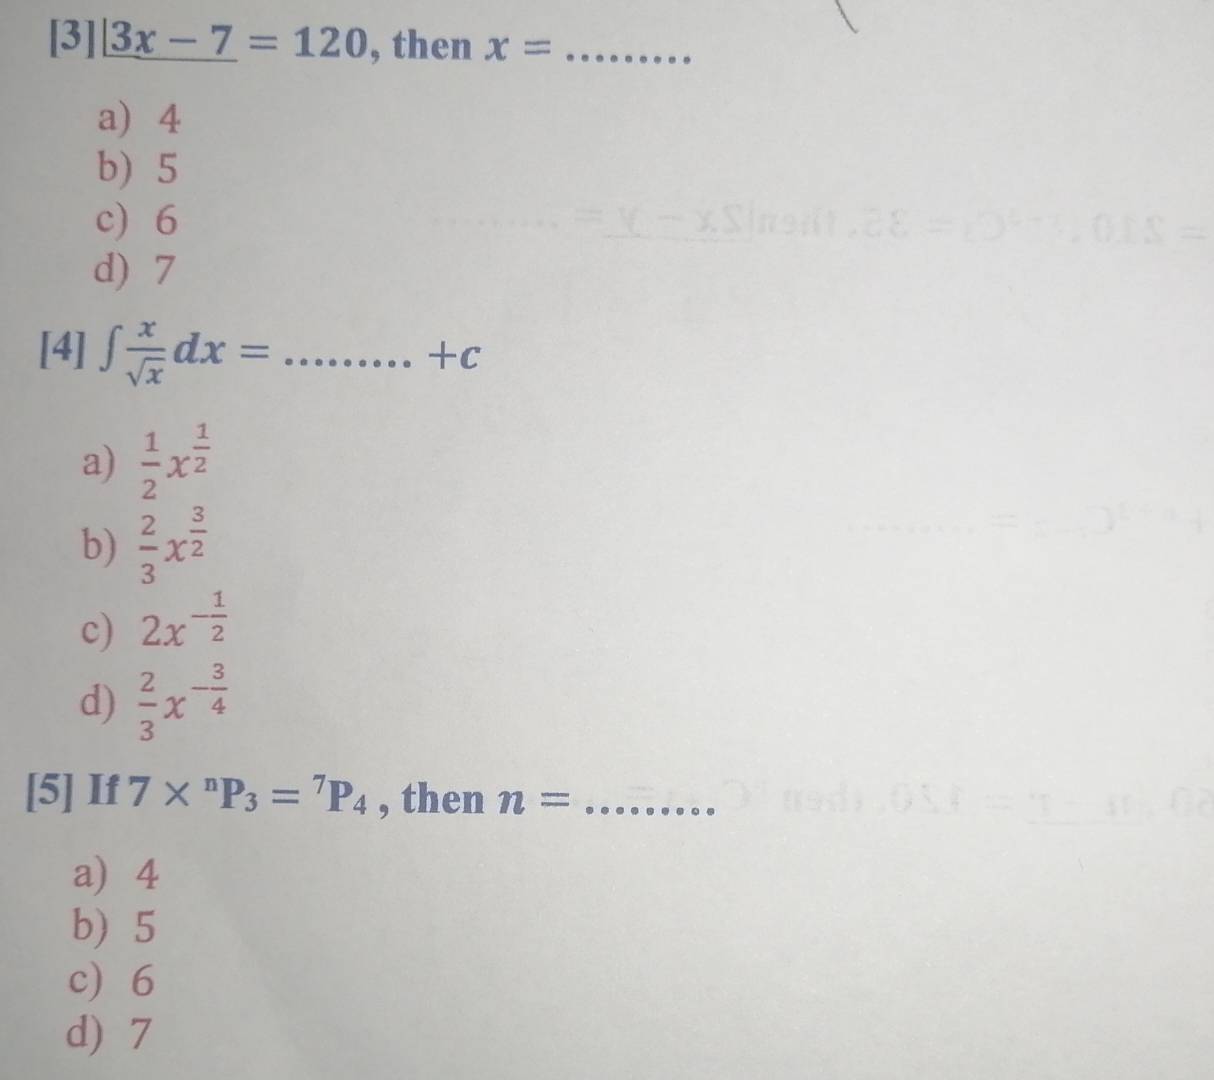 [3]|3x − 7 = 120, then x = .........
a) 4
b) 5
c) 6
d) 7
[4] ∫ x/√x dx = ......... +c
a) 1/2 x^(1/2)
b) 2/3 x^(3/2)
c) 2x^(−1/2)
d) 2/3 x^(−3/4)
[5] If 7 × ⁿP₃ = ⁷P₄ , then n = .........
a) 4
b) 5
c) 6
d) 7